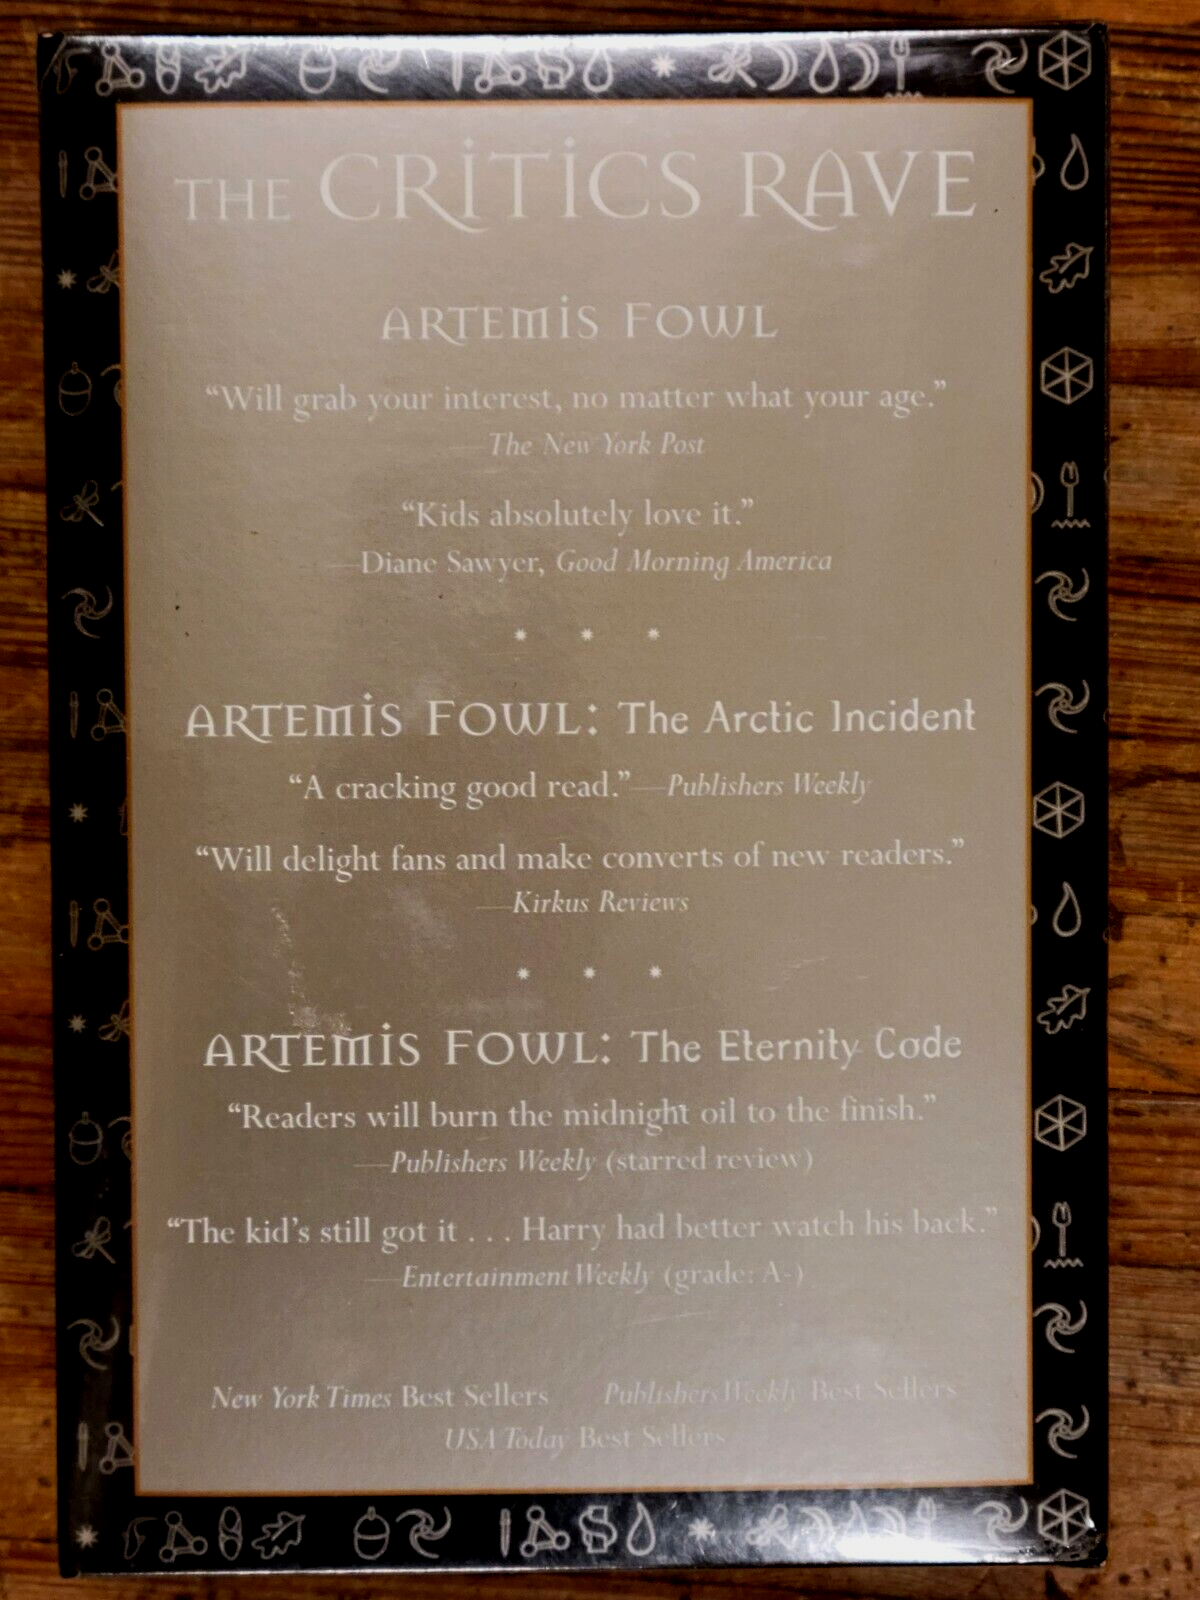 THE CRITICS RAVE
ARTEMIS FOWL
“Will grab your interest, no matter what your age.”
—The New York Post
“Kids absolutely love it.”
—Diane Sawyer, Good Morning America
ARTEMIS FOWL: The Arctic Incident
“A cracking good read.”—Publishers Weekly
“Will delight fans and make converts of new readers.”
—Kirkus Reviews
ARTEMIS FOWL: The Eternity Code
“Readers will burn the midnight oil to the finish.”
—Publishers Weekly (starred review)
“The kid’s still got it . . . Harry had better watch his back.”
—Entertainment Weekly (grade: A-)
New York Times Best Sellers Publishers Weekly Best Sellers
USA Today Best Sellers